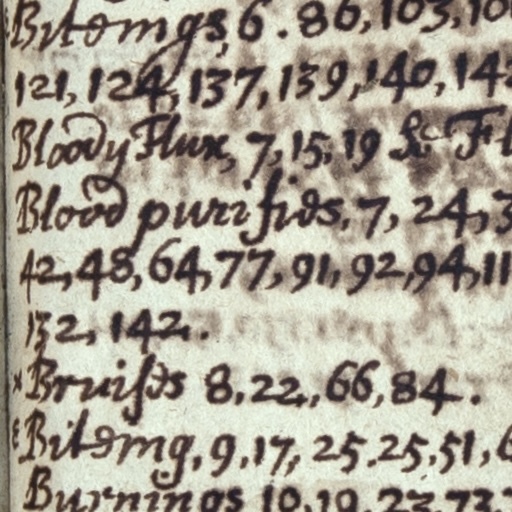 Bitemgs, 6. 86, 103, 10
121, 124, 137, 139, 140, 142
Bloody Flux, 7, 15, 19 &c Fl
Blood purifides, 7, 24, 3
42, 48, 64, 77, 91, 92, 94, 11
132, 142.
x Bruises 8, 22, 66, 84.
Bitemg, 9, 17, 25, 25, 51, 6
Burnings 10, 19, 23, 73,